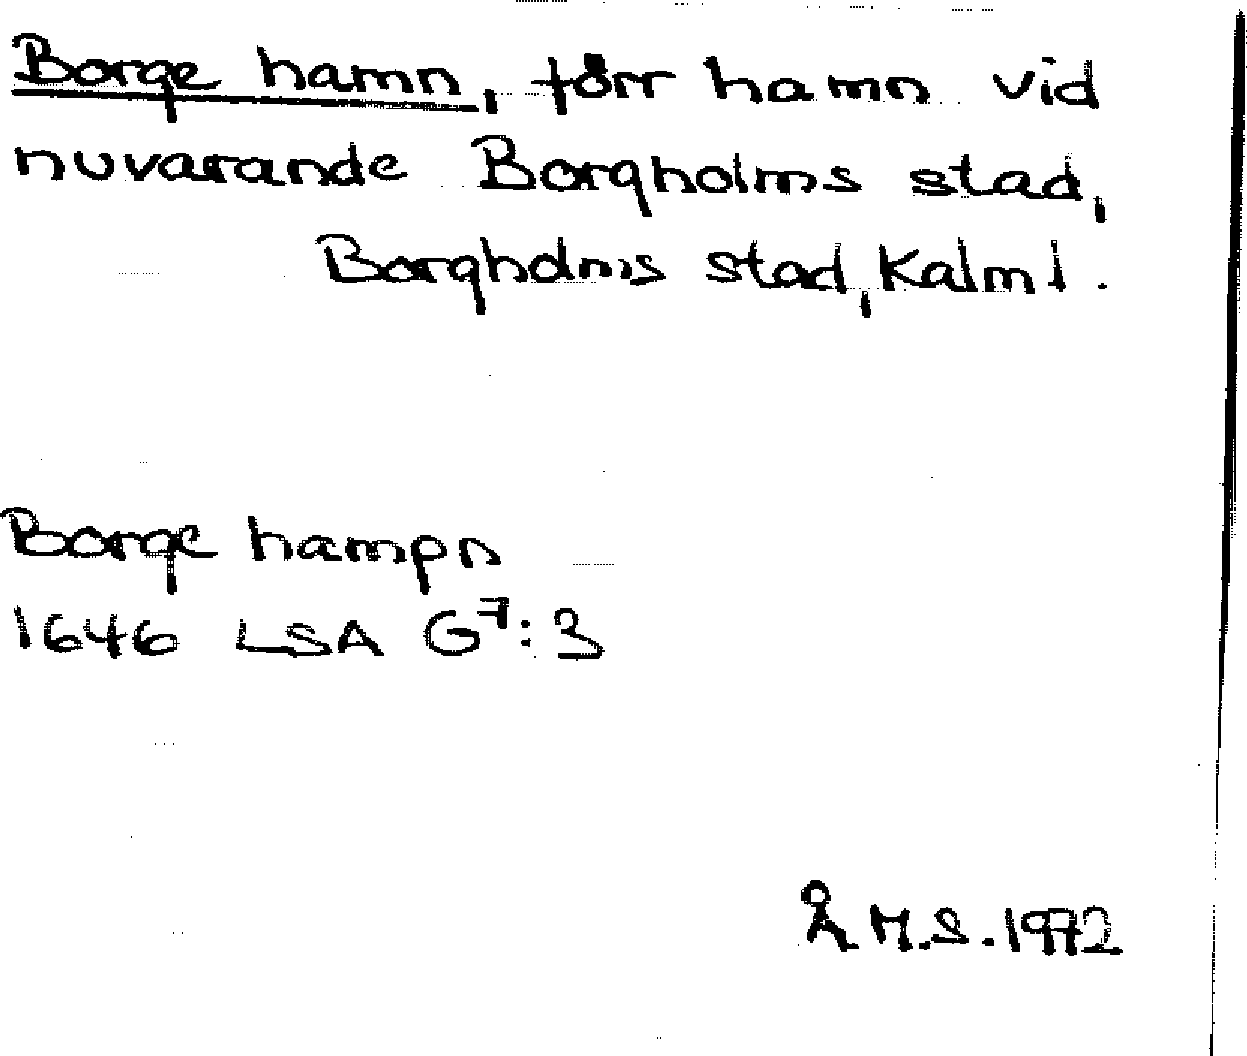 Borge hamn, förr hamn vid
nuvarande Borgholms stad,
Borgholms stad, Kalm l.
Borge hampn
1646 LSA G⁷:3
Å M.S. 1972